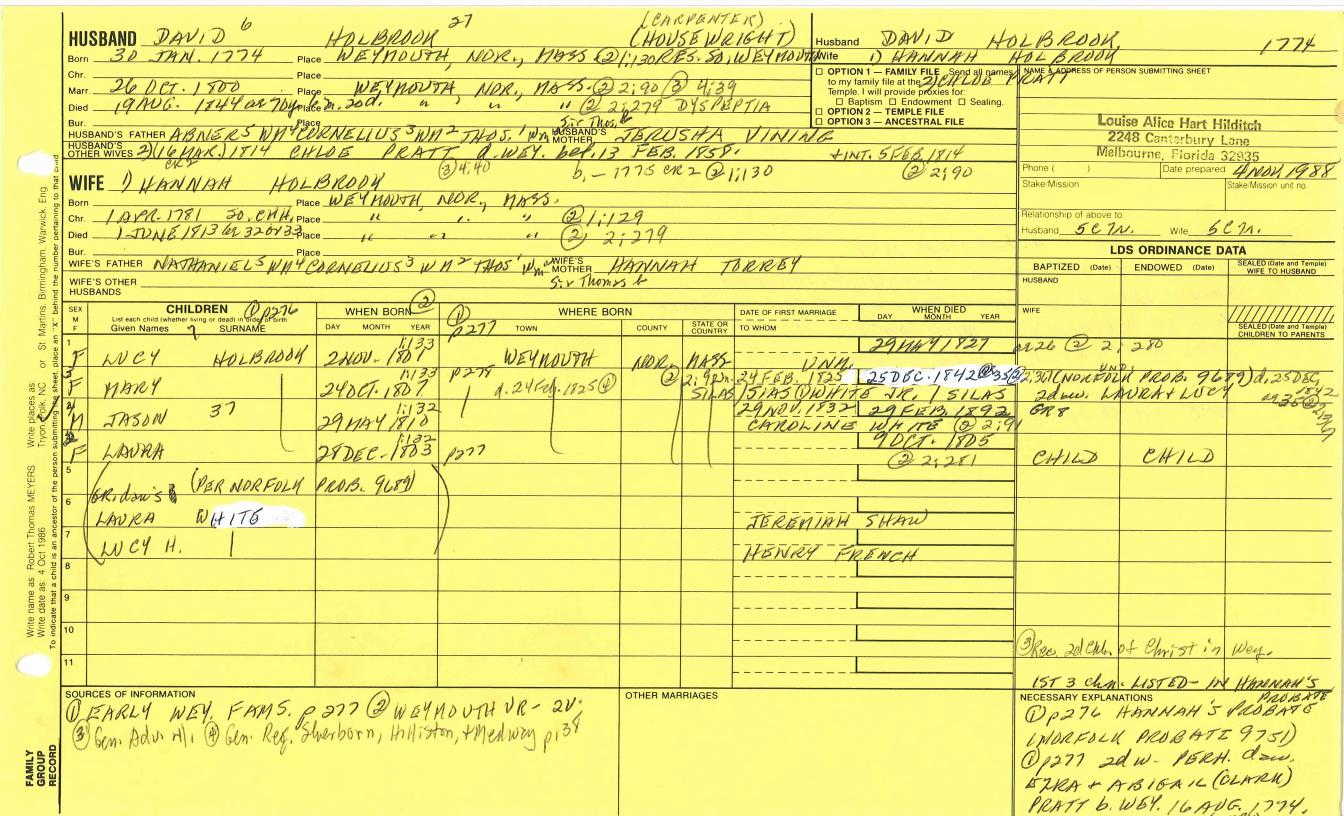 HUSBAND DAVID 6 HOLBROOK 27 (CARPENTER) (HOUSEWRIGHT)
Born 30 JAN. 1774 Place WEYMOUTH, NOR., MASS (2) 1:130 RES. SO. WEYMOUTH
Chr. Place
Marr. 26 OCT. 1800 Place WEYMOUTH, NOR., MASS. (2) 2:90 (3) 4:39
Died 19 AUG. 1844 Place " " " (2) 2:279 DYSPEPTIA
Bur. Place Sir Thos.
HUSBAND'S FATHER ABNER5 WM4 CORNELIUS3 WM2 THOS.1 HUSBAND'S MOTHER JERUSHA VINING
HUSBAND'S OTHER WIVES 2) (16 MAR.) 1814 CHLOE PRATT d. WEY. bef. 13 FEB. 1858. + INT. 5 FEB. 1814
CR2 (3) 4:40 b. - 1775 CR2 (2) 1:130 (2) 2:90
WIFE 1) HANNAH HOLBROOK
Born Place WEYMOUTH, NOR., MASS.
Chr. 1 APR. 1781 SO. CHH. Place " " " (2) 1:129
Died 1 JUNE 1813 Place " " " (2) 2:279
Bur. Place
WIFE'S FATHER NATHANIEL5 WM4 CORNELIUS3 WM2 THOS1 WIFE'S MOTHER HANNAH TORREY
Sir Thomas
WIFE'S OTHER HUSBANDS
Husband DAVID HOLBROOK, 1774
Wife 1) HANNAH HOLBROOK
2) CHLOE PRATT
☐ OPTION 1 — FAMILY FILE Send all names
to my family file at the
Temple. I will provide proxies for:
☐ Baptism ☐ Endowment ☐ Sealing.
☐ OPTION 2 — TEMPLE FILE
☐ OPTION 3 — ANCESTRAL FILE
NAME & ADDRESS OF PERSON SUBMITTING SHEET
Louise Alice Hart Hilditch
2248 Canterbury Lane
Melbourne, Florida 32935
Phone ( ) Date prepared 4 NOV. 1988
Stake/Mission Stake/Mission unit no.
Relationship of above to
Husband 5C7r. Wife 5C7r.
LDS ORDINANCE DATA
BAPTIZED (Date) ENDOWED (Date) SEALED (Date and Temple) WIFE TO HUSBAND
HUSBAND
WIFE
SEALED (Date and Temple) CHILDREN TO PARENTS
SEX M F CHILDREN (1) p276 WHEN BORN (2) WHERE BORN DATE OF FIRST MARRIAGE WHEN DIED
List each child (whether living or dead) in order of birth
Given Names SURNAME DAY MONTH YEAR (1) p277 TOWN COUNTY STATE OR COUNTRY TO WHOM DAY MONTH YEAR
1 F LUCY HOLBROOK 2 NOV. 1801 1:133 WEYMOUTH NOR. MASS. UNM. 29 MAY 1827 ae 26 (2) 2:280
3 F MARY 24 OCT. 1807 1:133 p278 d. 24 Feb. 1825 (4) (2) 2:92 m. 24 FEB. 1825 25 DEC. 1842 (NORFOLK PROB. 9689) d. 25 DEC. 1842
SILAS WHITE JR. / SILAS 2 daus. LAURA + LUCY
M JASON 37 29 MAY 1810 1:132 29 NOV. 1832 29 FEB. 1892 GR8
CAROLINE WHITE (2) 2:91
F LAURA 28 DEC. 1803 1:132 p277 9 OCT. 1805 CHILD CHILD
(2) 2:281
5 Gr. dau's (PER NORFOLK PROB. 9689)
6 LAURA WHITE JEREMIAH SHAW
7 LUCY H. HENRY FRENCH
8
9
10
11
(3) Rec. 2d Chh. of Christ in Wey.
1ST 3 chn. LISTED - IN HANNAH'S PROBATE
SOURCES OF INFORMATION
(1) EARLY WEY. FAMS. p277 (2) WEYMOUTH VR - 2V.
(3) Gen. Adv. (4) Gen. Reg. Sherborn, Holliston, + Medway p. 38
OTHER MARRIAGES
NECESSARY EXPLANATIONS
(1) p276 HANNAH'S PROBATE
(NORFOLK PROBATE 9751)
(1) p277 2d w. PERH. dau.
EZRA + ABIGAIL (CLARK)
PRATT b. WEY. 16 AUG. 1774.
FAMILY GROUP RECORD
Write name as Robert Thomas MEYERS Write places as Tryon, Polk, NC or St Martins, Birmingham, Warwick, Eng
Write date as 4 Oct 1986
To indicate that a child is an ancestor of the person submitting the sheet, place an "X" behind the number pertaining to that child